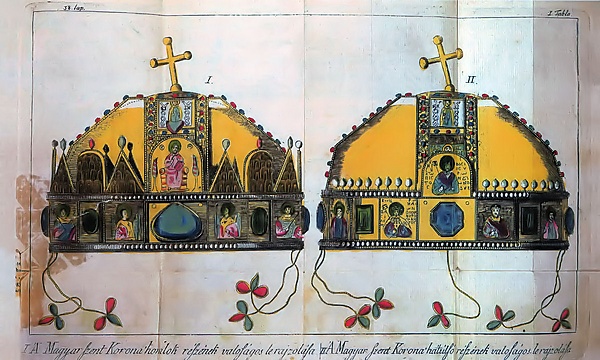 38. lap.
I. Tabla
I.
II.
I A Magyar szent Korona' homlok részének valoságos lerajzolása
II A Magyar szent Korona' hátulsó részének valoságos lerajzolása